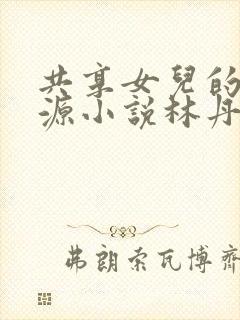 共享女兒的
源小説林丹
弗朗索瓦博齊